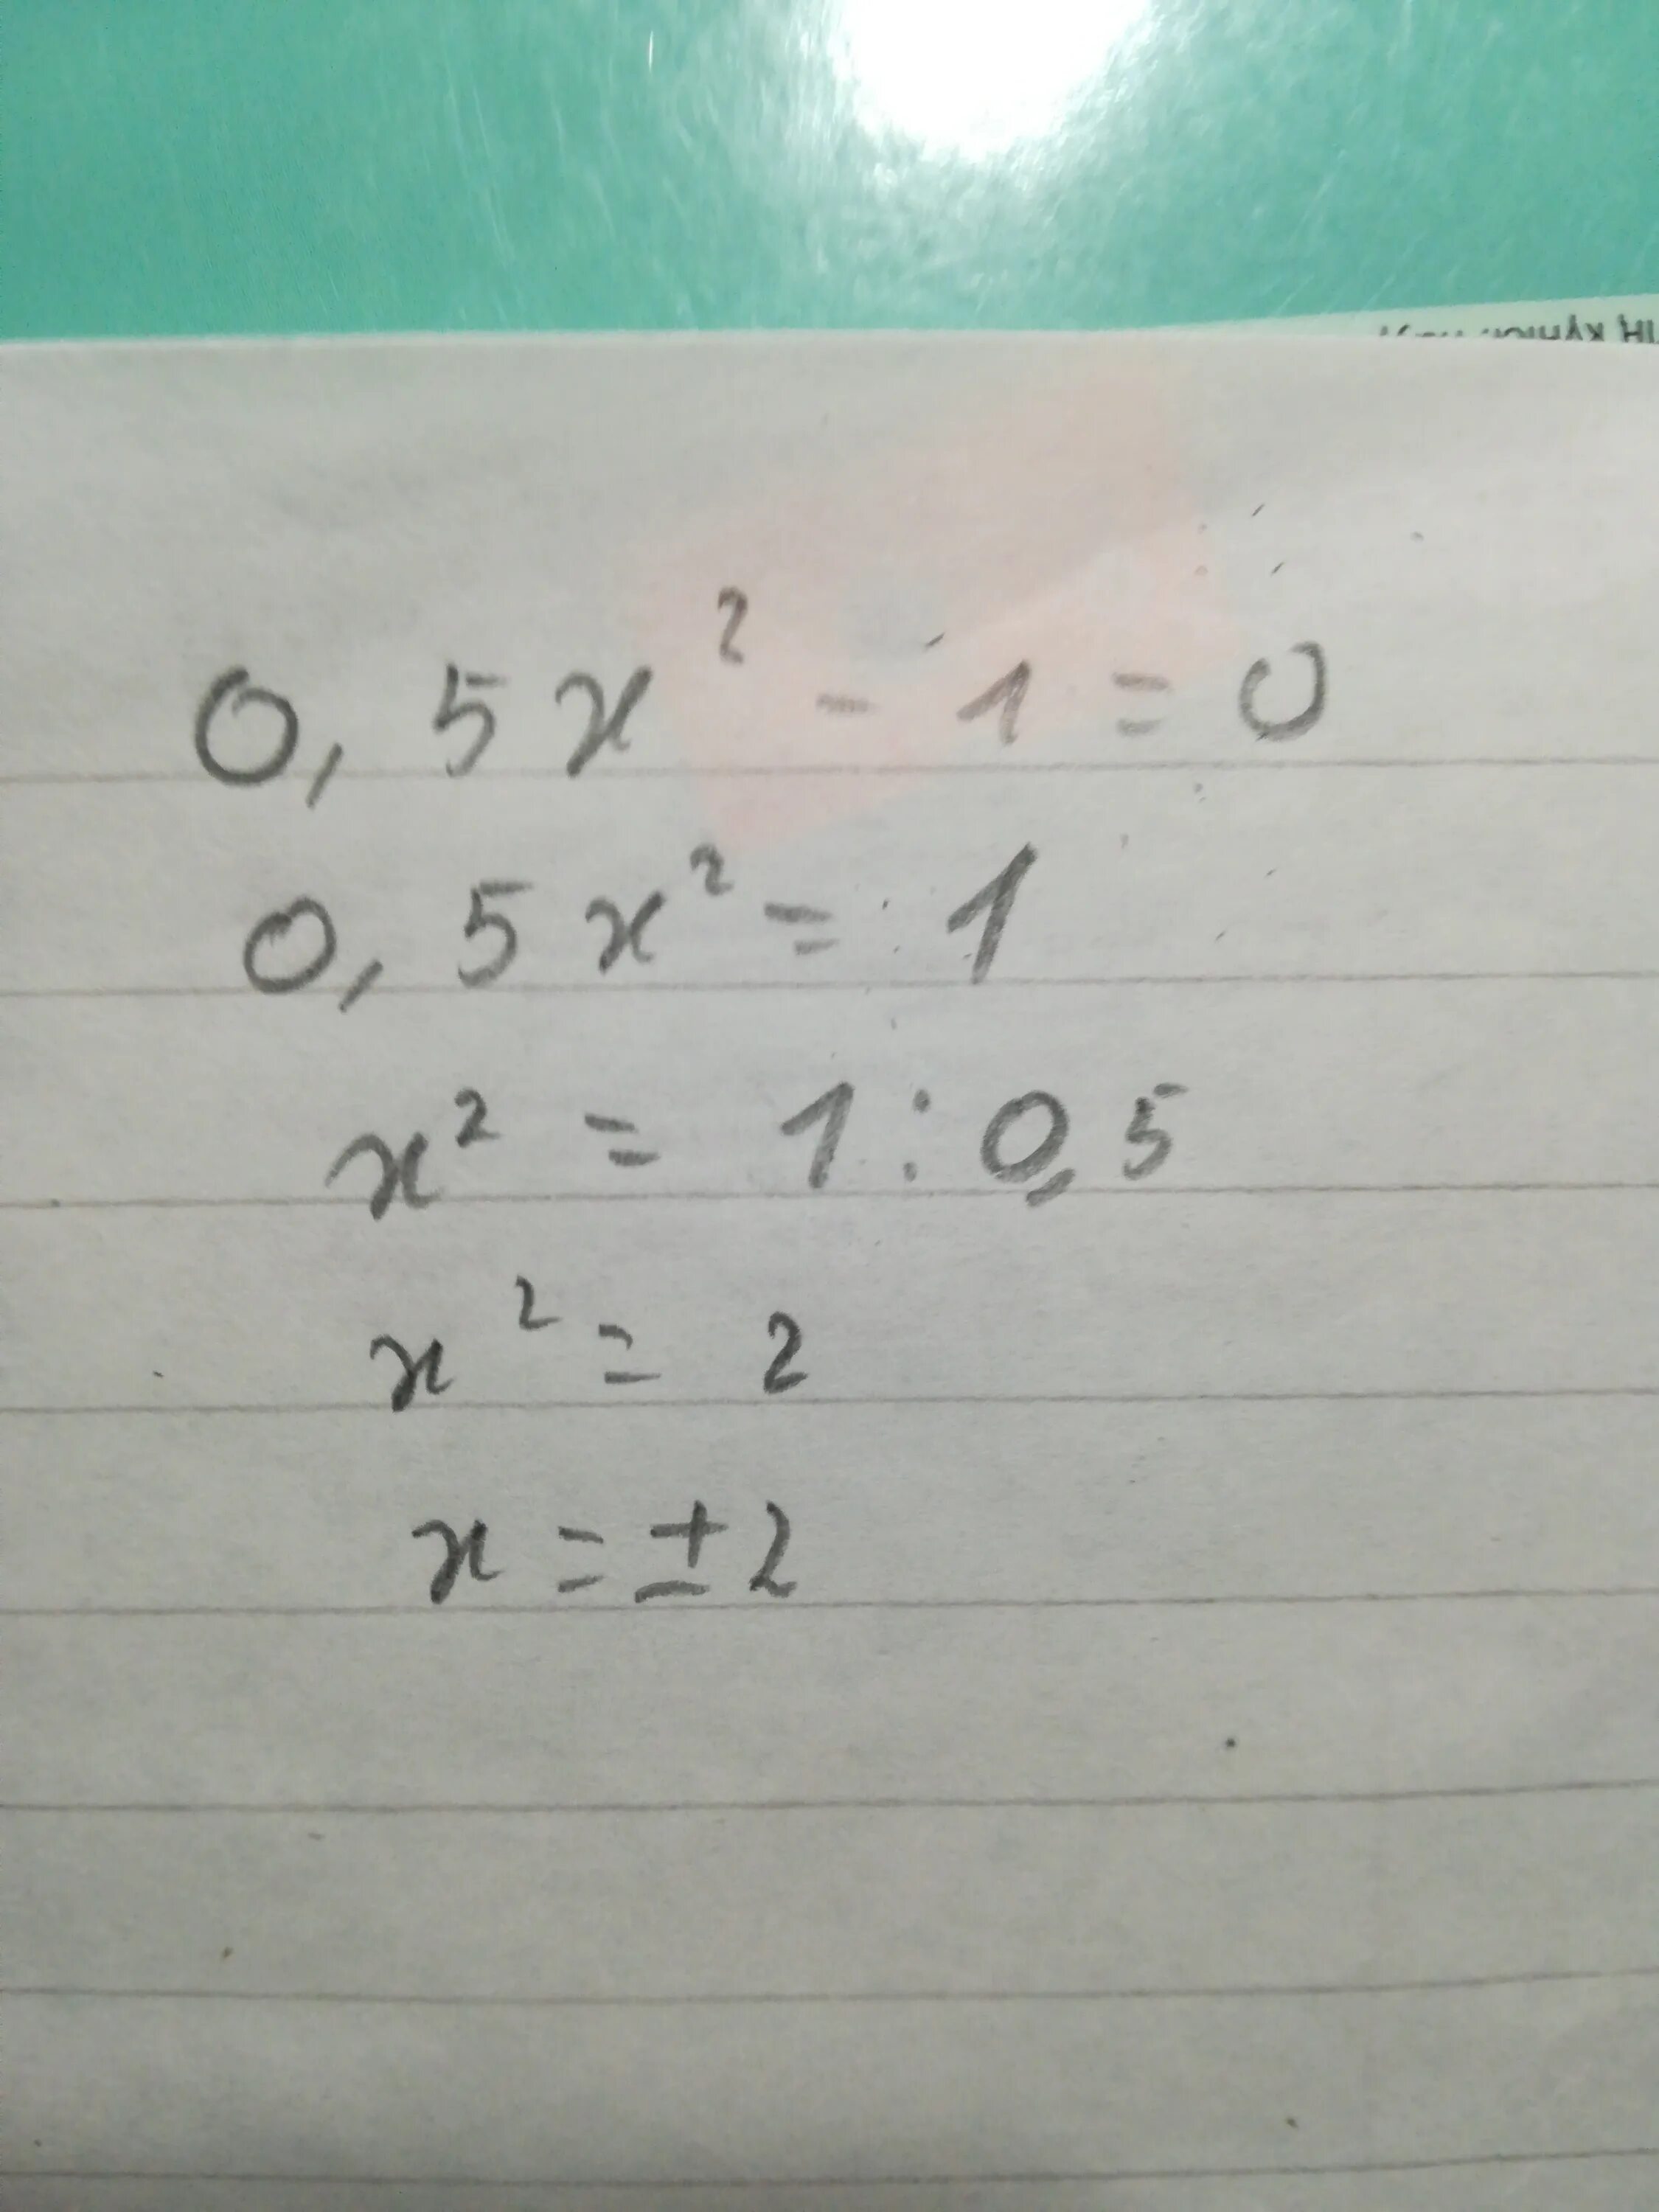 0,5x² - 1 = 0
0,5x² = 1
x² = 1 : 0,5
x² = 2
x = ±2